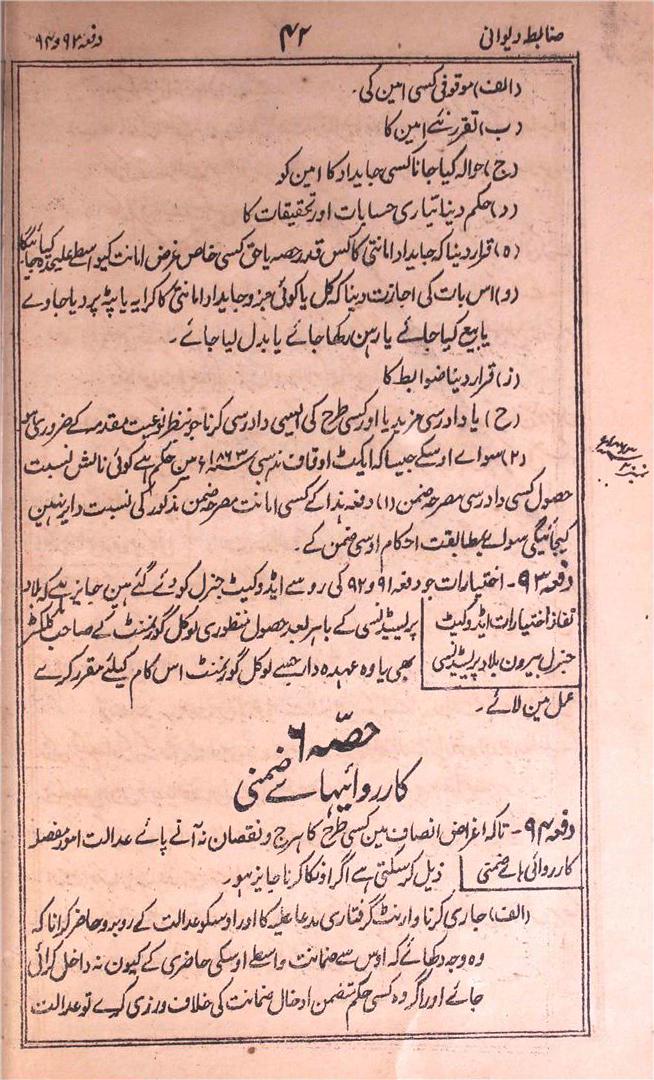 ضابطہ دیوانی ۴۲ دفعہ ۹۳ و ۹۴
(الف) موقوفی کسی امین کی۔
(ب) تقرر نئے امین کا
(ج) حوالہ کیا جانا کسی جایداد کا امین کو
(د) حکم دینا تیاری حسابات اور تحقیقات کا
(ہ) قرار دینا کہ جایداد امانتی کا کس قدر حصہ یا حق کسی خاص غرض امانت کیواسطے علیحدہ کیا جائیگا
(و) اس بات کی اجازت دینا کہ کل یا کوئی جزو جایداد امانتی کا کرایہ یا پٹہ پر دیا جاوے
یا بیع کیا جائے یا رہن رکھا جائے یا بدل لیا جائے۔
(ز) قرار دینا ضوابط کا
(ح) یا دادرسی مزید یا اور کسی طرح کی ایسی دادرسی کرنا جو بنظر نوعیت مقدمہ کے ضروری ہو
(۲) سواے اوسکے جیسا کہ ایکٹ اوقاف مذہبی سنہ ۱۸۶۳ء مین حکم ہے کوئی نالش نسبت
حصول کسی دادرسی مصرحہ ضمن (۱) دفعہ ہذا کے کسی امانت مصرحہ ضمن مذکور کی نسبت دایر نہین
کیجائیگی سواے بمطابقت احکام اوسی ضمن کے۔
دفعہ ۹۳۔ اختیارات جو دفعہ ۹۱ و ۹۲ کی رو سے ایڈوکیٹ جنرل کو دئے گئے ہین جایز ہے کہ بلاد
نفاذ اختیارات ایڈوکیٹ
جنرل بیرون بلاد پریسیڈنسی
پریسیڈنسی کے باہر بعد حصول منظوری لوکل گورنمنٹ کے صاحب کلکٹر
بھی یا وہ عہدہ دار جسے لوکل گورنمنٹ اس کام کیلئے مقرر کرے
عمل مین لائے۔
حصہ ۶
کارروائیہاے ضمنی
دفعہ ۹۴۔ تاکہ اغراض انصاف مین کسی طرح کا ہرج و نقصان نہ آنے پائے عدالت امور مفصلہ
کارروائی ہاے ضمنی
ذیل کر سکتی ہے اگر اونکا کرنا جایز ہو۔
(الف) جاری کرنا وارنٹ گرفتاری مدعا علیہ کا اور اوسکو عدالت کے روبرو حاضر کرانا کہ
وہ وجہ دکھائے کہ اوس سے ضمانت واسطے اوسکی حاضری کے کیون نہ داخل کرائی
جائے اور اگر وہ کسی حکم متضمن ادخال ضمانت کی خلاف ورزی کرے تو عدالت